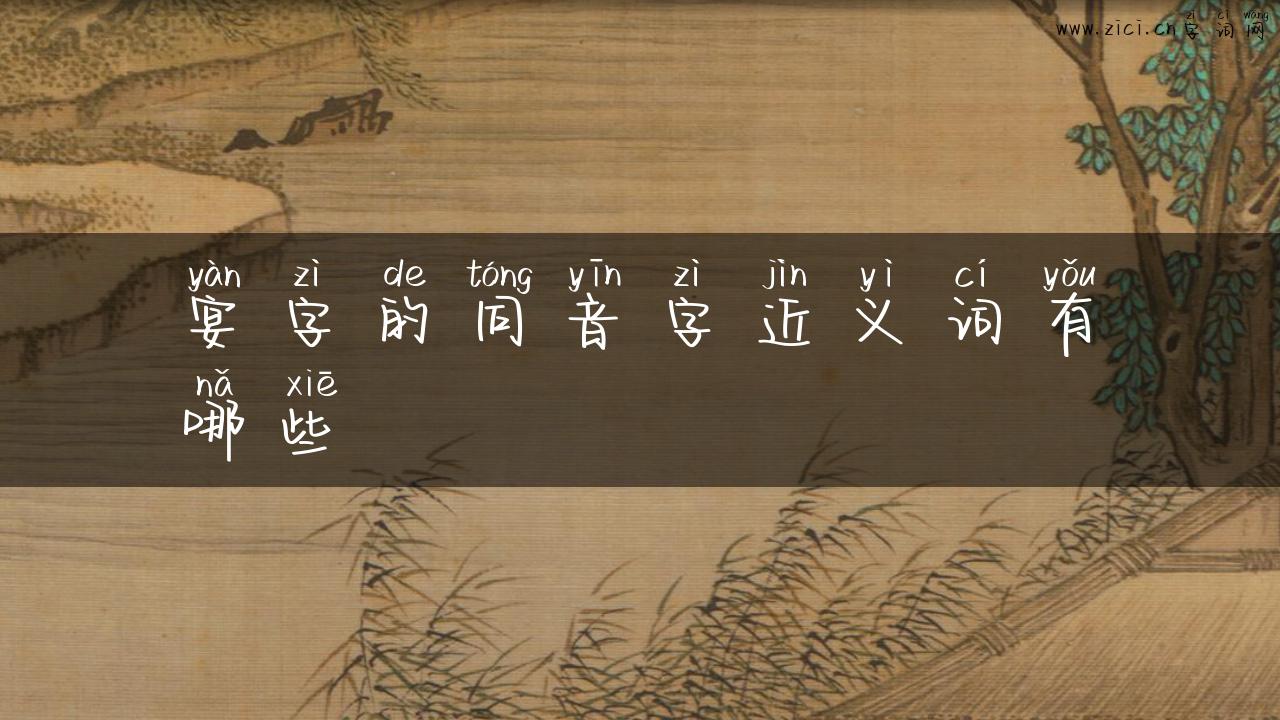 zì cí wǎng
www.zici.cn字词网
yàn zì de tóng yīn zì jìn yì cí yǒu
宴字的同音字近义词有
nǎ xiē
哪些